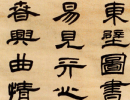 東壁圖書
易見天心
春興曲情